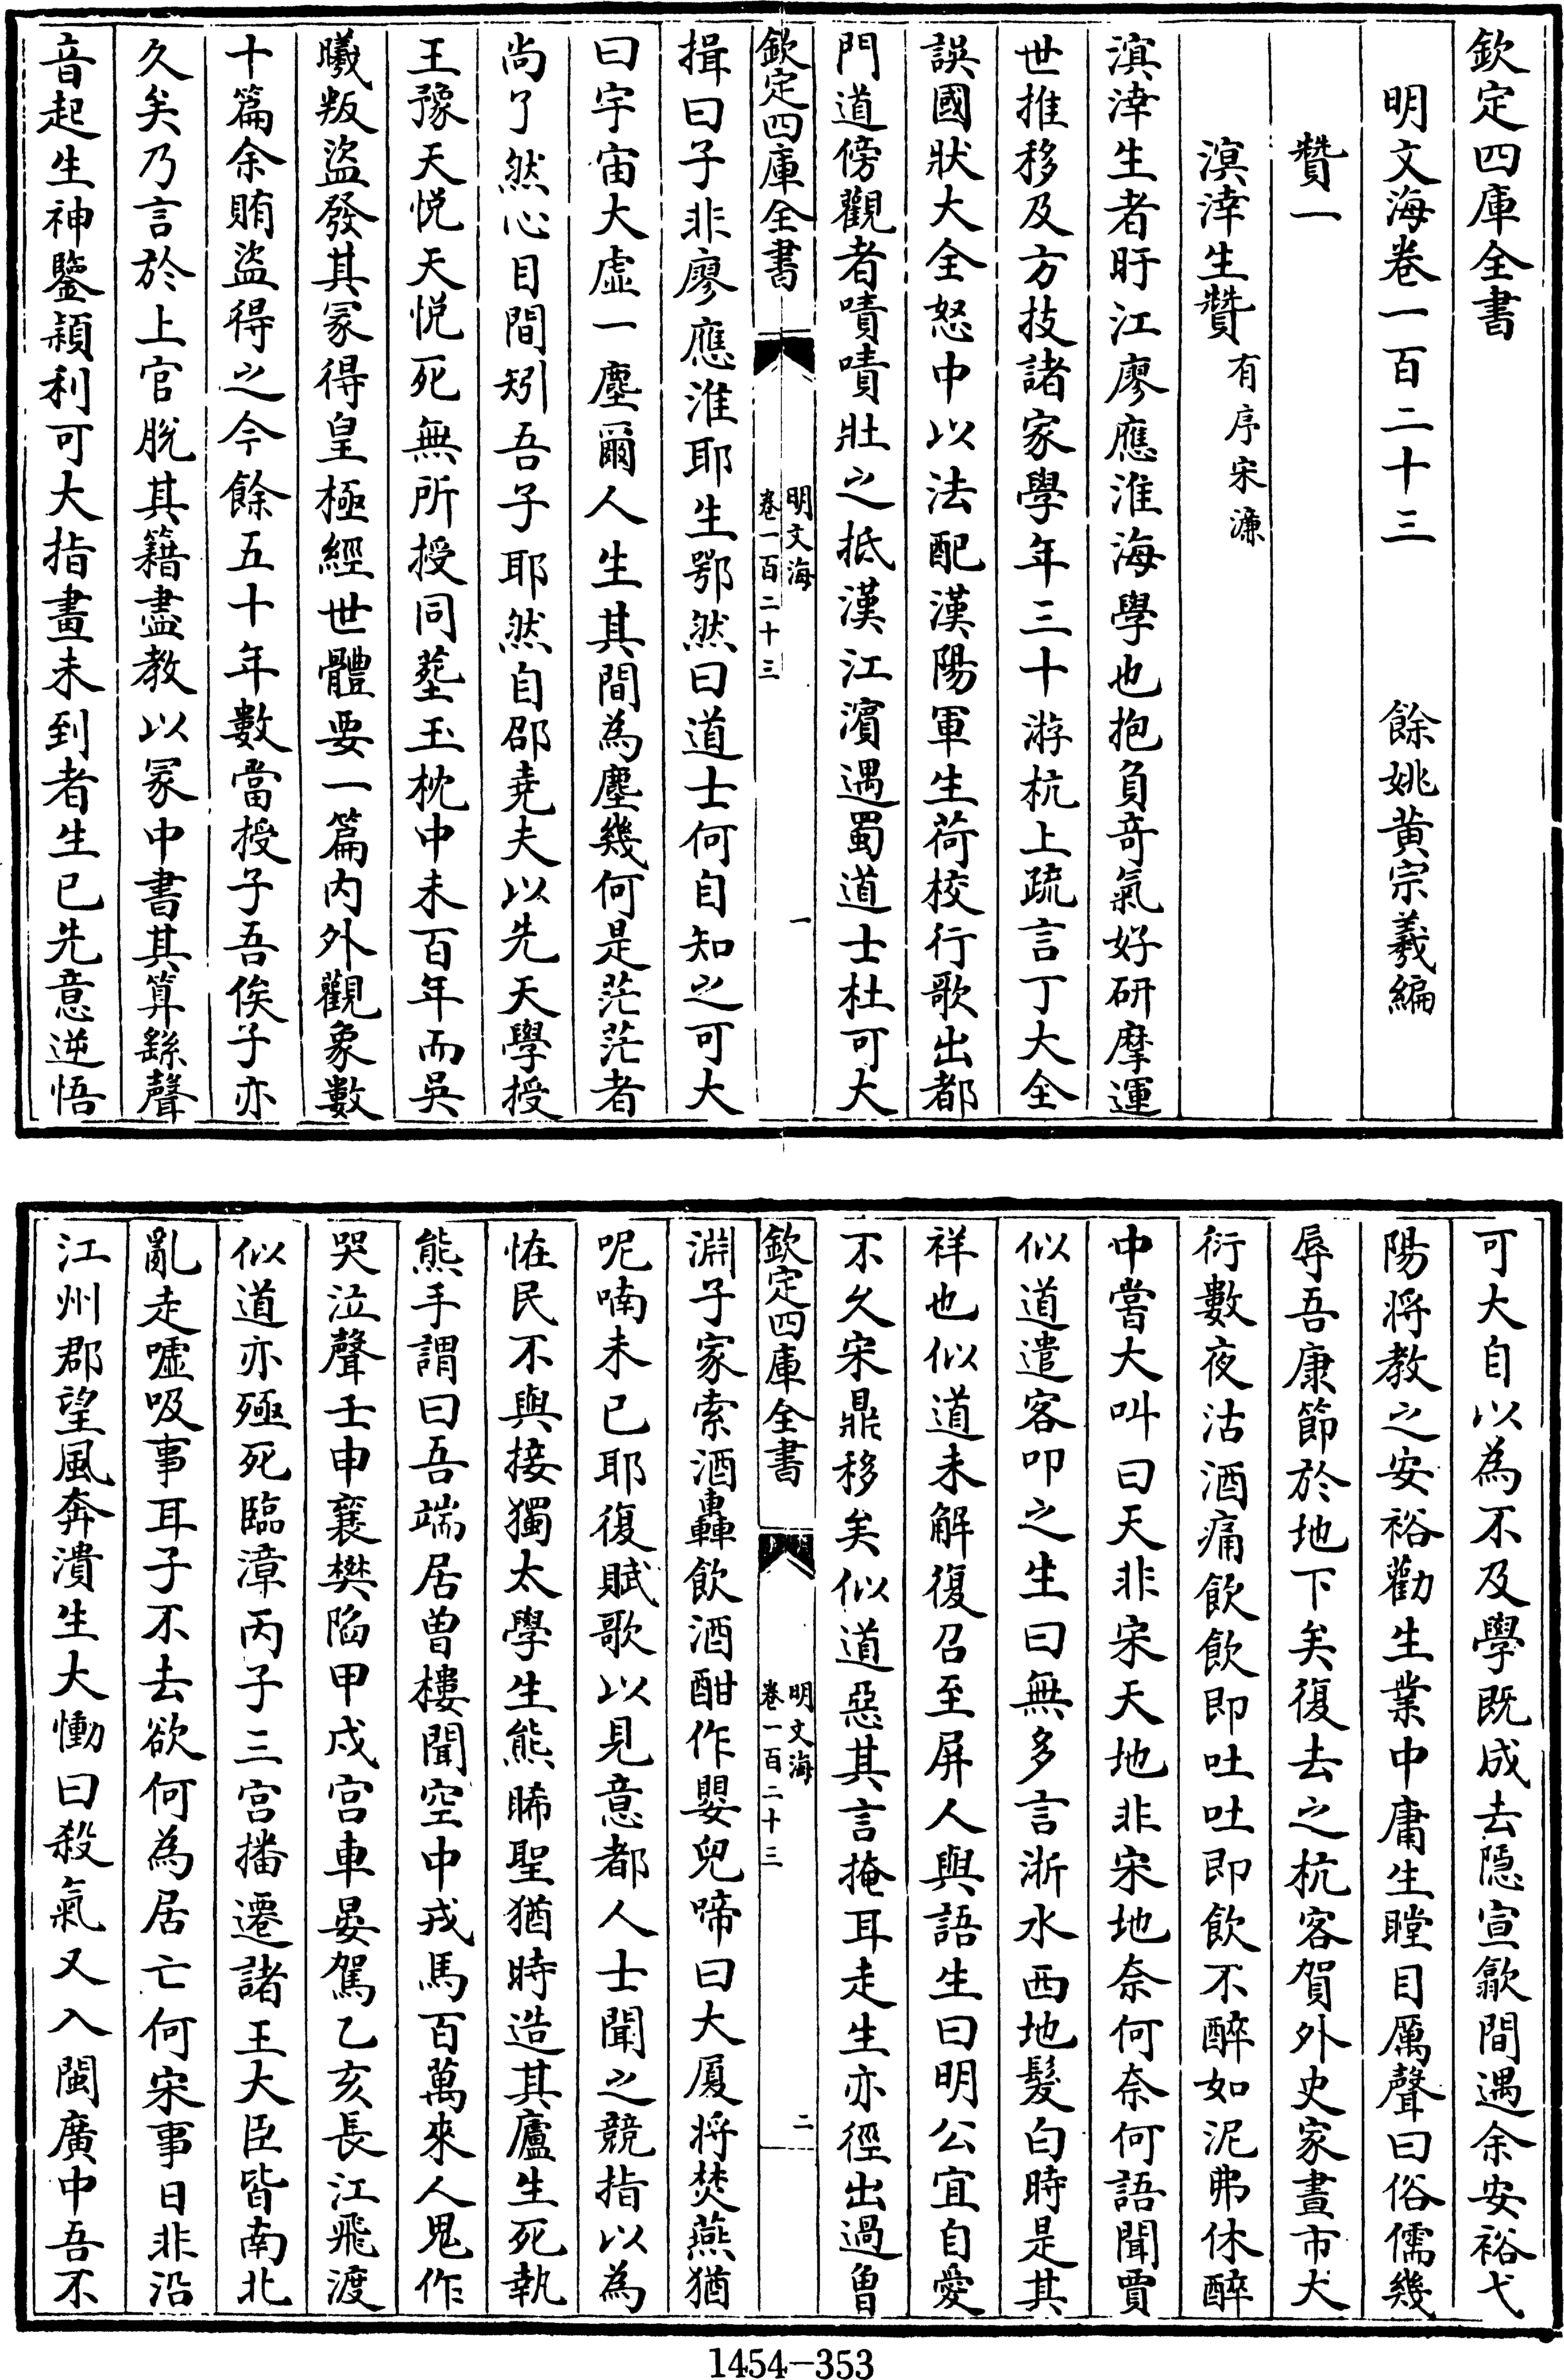 欽定四庫全書
明文海卷一百二十三　餘姚黃宗羲編
贊一
溟涬生贊有序宋濂
溟涬生者盱江廖應淮海學也抱負竒氣好研摩運
世推移及方技諸家學年三十游杭上疏言丁大全
誤國狀大全怒中以法配漢陽軍生荷校行歌出都
門道傍觀者嘖嘖壯之抵漢江濱遇蜀道士杜可大
欽定四庫全書
明文海
卷一百二十三
一
揖曰子非廖應淮耶生鄂然曰道士何自知之可大
曰宇宙大虛一塵爾人生其間為塵幾何是茫茫者
尚了然心目間矧吾子耶然自邵堯夫以先天學授
王豫天悅天悅死無所授同葬玉枕中未百年而吳
曦叛盜發其冡得皇極經世體要一篇内外觀象數
十篇余賄盜得之今餘五十年數當授子吾俟子亦
久矣乃言於上官脫其籍盡教以冡中書其算繇聲
音起生神鑒穎利可大指畫未到者生已先意逆悟
可大自以為不及學既成去隱宣歙間遇余安裕弋
陽將教之安裕勸生業中庸生瞠目厲聲曰俗儒幾
辱吾康節於地下矣復去之杭客賀外史家晝市大
衍數夜沽酒痛飲飲即吐吐即飲不醉如泥弗休醉
中嘗大叫曰天非宋天地非宋地奈何奈何語聞賈
似道遣客叩之生曰無多言浙水西地髮白時是其
祥也似道未解復召至屏人與語生曰明公宜自愛
不久宋鼎移矣似道惡其言掩耳走生亦徑出過曾
欽定四庫全書
明文海
卷一百二十三
二
淵子家索酒轟飲酒酣作嬰兒啼曰大厦將焚燕猶
呢喃未已耶復賦歌以見意都人士聞之競指以為
恠民不與接獨太學生熊晞聖猶時造其廬生死執
熊手謂曰吾端居曾樓聞空中戎馬百萬來人鬼作
哭泣聲壬申襄樊陷甲戌宮車晏駕乙亥長江飛渡
似道亦殛死臨漳丙子三宮播遷諸王大臣皆南北
亂走噓吸事耳子不去欲何為居亡何宋事日非沿
江州郡望風奔潰生大慟曰殺氣又入閩廣中吾不
1454-353